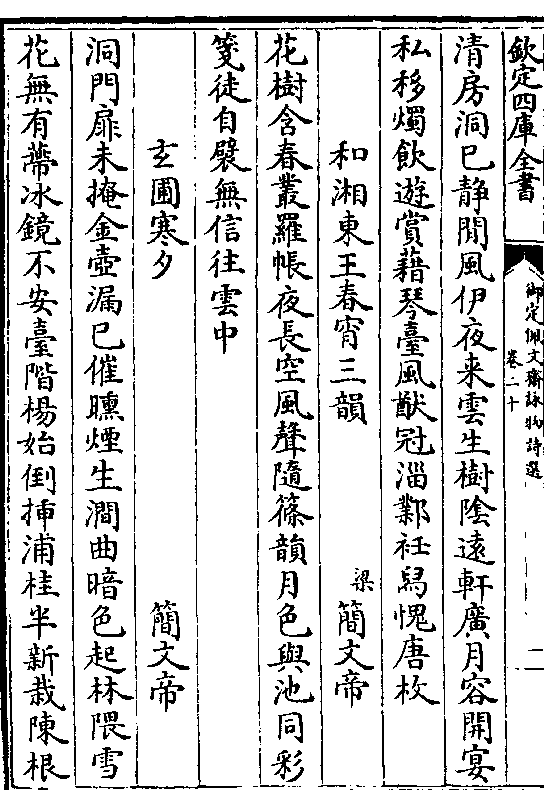 欽定四庫全書
御定佩文齋詠物詩選
卷二十
二
清房洞已静閒風伊夜来雲生樹陰遠軒廣月容開宴
私移燭飲遊賞藉琴臺風猷冠淄鄴衽舄愧唐枚
和湘東王春宵三韻 梁簡文帝
花樹含春叢羅帳夜長空風聲隨篠韻月色與池同彩
箋徒自襞無信往雲中
玄圃寒夕 簡文帝
洞門扉未掩金壺漏已催曛煙生澗曲暗色起林隈雪
花無有蔕冰鏡不安臺階楊始倒插浦桂半新栽陳根